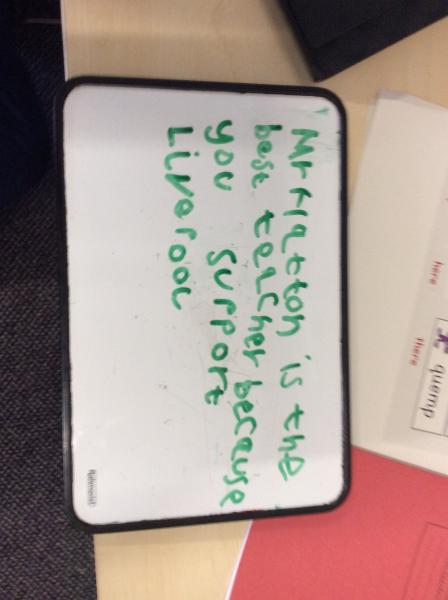 Mr Flatton is the
best teacher because
you support
Liverool
here
there
quemp